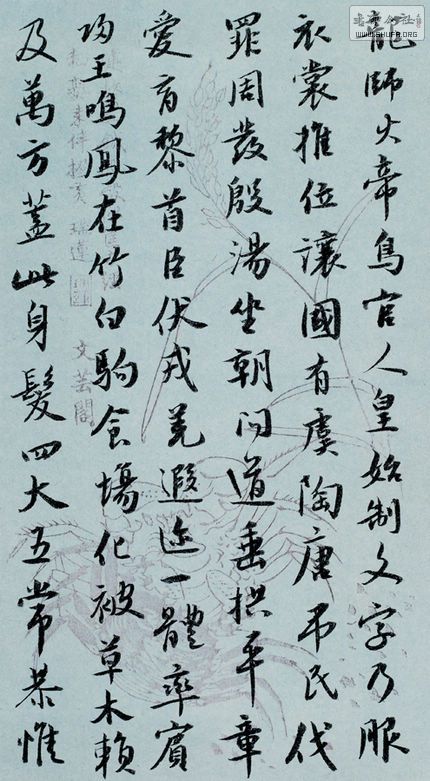 龍師火帝鳥官人皇始制文字乃服
衣裳推位讓國有虞陶唐吊民伐
罪周發殷湯坐朝問道垂拱平章
愛育黎首臣伏戎羌遐迩一體率賓
歸王鳴鳳在竹白駒食場化被草木賴
及萬方蓋此身髮四大五常恭惟
文芸閣
WWW.SHUFA.ORG